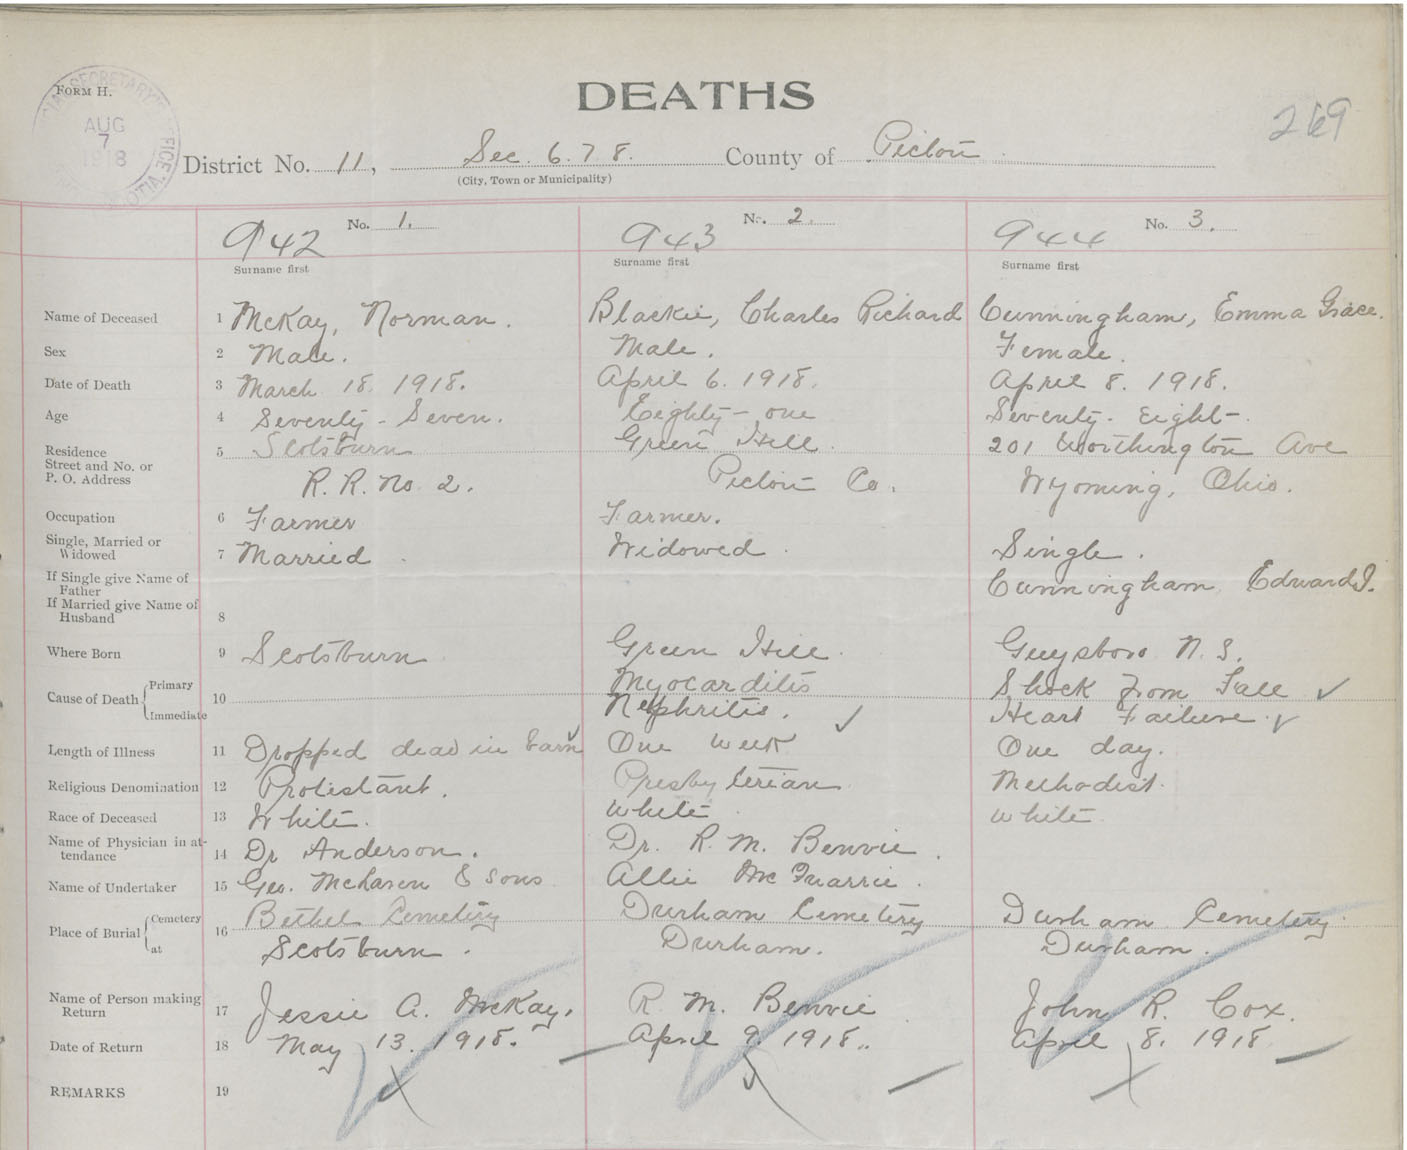 FORM H.
DEATHS
269
AUG
7
1918
District No. 11, Sec. 6.7.8. County of Pictou
(City, Town or Municipality)
No. 1. No. 2. No. 3.
942 943 944
Surname first Surname first Surname first
Name of Deceased 1 McKay, Norman. Blackie, Charles Richard Cunningham, Emma Grace.
Sex 2 Male. Male. Female.
Date of Death 3 March 18. 1918. April 6. 1918. April 8. 1918.
Age 4 Seventy-Seven. Eighty-one Seventy-Eight-.
Residence 5 Scotsburn Green Hill. 201 Worthington Ave
Street and No. or
P. O. Address R. R. No 2. Pictou Co. Wyoming, Ohio.
Occupation 6 Farmer Farmer.
Single, Married or
Widowed 7 Married Widowed. Single.
If Single give Name of
Father Cunningham, Edward I.
If Married give Name of
Husband 8
Where Born 9 Scotsburn Green Hill. Guysboro N. S.
Cause of Death Primary 10 Myocarditis Shock from Fall
Immediate Nephritis. Heart Failure.
Length of Illness 11 Dropped dead in barn One week One day.
Religious Denomination 12 Protestant. Presbyterian Methodist.
Race of Deceased 13 White. White White
Name of Physician in at-
tendance 14 Dr Anderson. Dr. R. M. Benvie.
Name of Undertaker 15 Geo. McLaren & Sons Allie McQuarrie.
Place of Burial Cemetery 16 Bethel Cemetery Durham Cemetery Durham Cemetery
at Scotsburn. Durham. Durham.
Name of Person making
Return 17 Jessie A. McKay. R. M. Benvie John R. Cox.
Date of Return 18 May 13. 1918. April 9. 1918. April 8. 1918
REMARKS 19